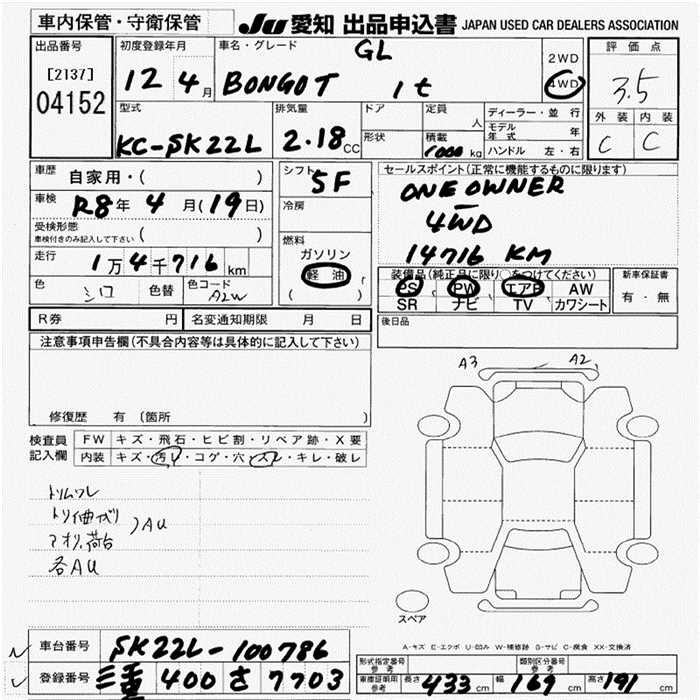 車内保管・守衛保管
Ju 愛知 出品申込書 JAPAN USED CAR DEALERS ASSOCIATION
出品番号
[2137]
04152
初度登録年月
12 4月
車名・グレード
GL
BONGO T 1t
2WD
4WD
評価点
3.5
外装 内装
C C
型式
KC-SK22L
排気量
2.18 CC
ドア
形状
定員
人
積載
1000 kg
ディーラー・並行
モデル年式 年
ハンドル 左・右
車歴
自家用・( )
車検
R8年 4月(19日)
受検形態
車検付きのみ記入して下さい ( )
走行
1万4千716 km
色
シロ
色替
色コード
A2W
シフト
5F
冷房
燃料
ガソリン
軽油
( )
セールスポイント(正常に機能するものに限ります)
ONE OWNER
4WD
14716 KM
装備品(純正品に限り○をつけてください)
PS PW エアB AW
SR ナビ TV カワシート
新車保証書
有・無
R券 円 名変通知期限 月 日
後日品
注意事項申告欄(不具合内容等は具体的に記入して下さい)
修復歴 有 (箇所 )
検査員記入欄
FW キズ・飛石・ヒビ割・リペア跡・X要
内装 キズ・汚レ・コゲ・穴・スレ・キレ・破レ
トリ曲がり
AU
アオリ、荷台
各AU
A3 A2
スペア
A-キズ E-エクボ U-凹み W-補修跡 S-サビ C-腐食 XX-交換済
車台番号 SK22L-100786
登録番号 三重 400 さ 7703
形式指定番号 参考
類別区分番号 参考
車庫証明用 参考 長さ 433 cm 幅 169 cm 高さ 191 cm